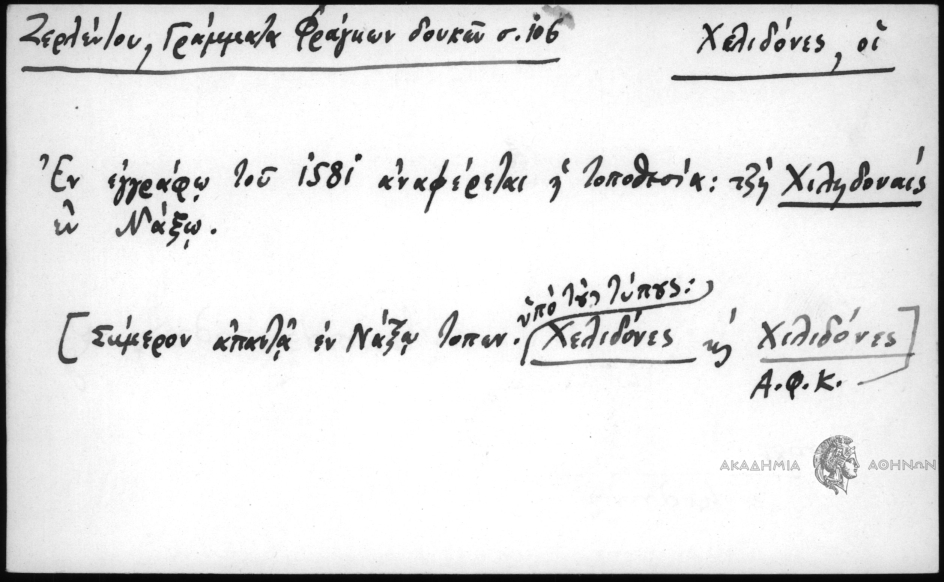 Ζερλέντου, Γράμματα Φράγκων δουκῶν σ. 106
Χελιδόνες, οἱ
Ἐν ἐγγράφῳ τοῦ 1581 ἀναφέρεται ἡ τοποθεσία: τζὴ Χεληδοναίς
ἐν Νάξῳ.
ὑπὸ τοὺς τύπους:
[Σήμερον ἀπαντᾷ ἐν Νάξῳ τοπων. Χελιδόνες κ Χιλιδόνες]
Α.Φ.Κ.
ΑΚΑΔΗΜΙΑ ΑΘΗΝΩΝ